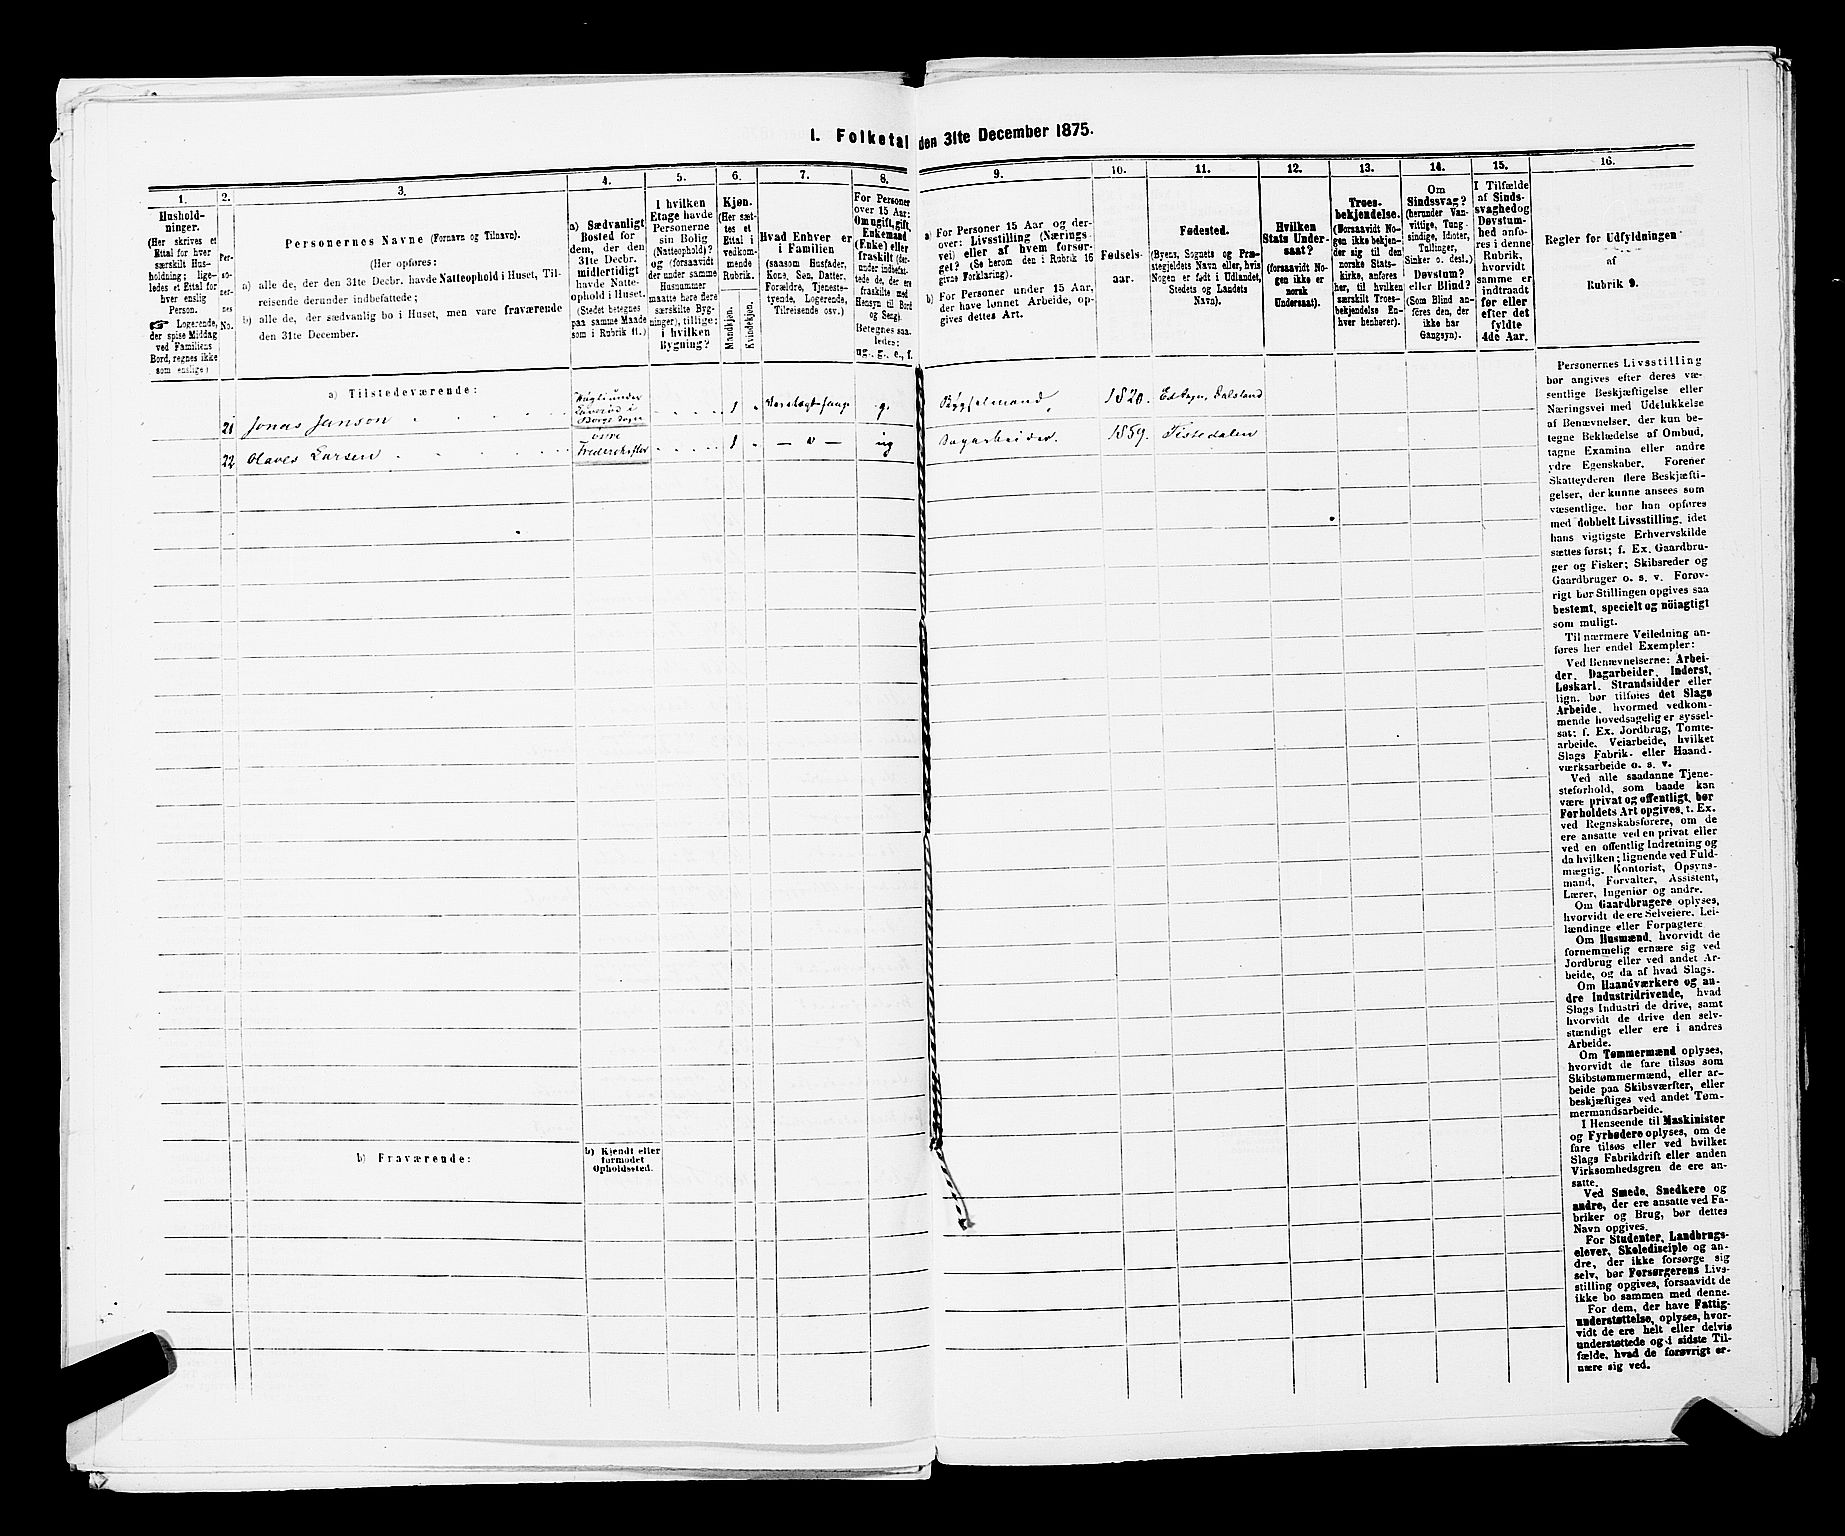 I. Folketal den 31te December 1875.
1.
Hushold-
ninger.
(Her skrives et
Ettal for hver
særskilt Hus-
holdning; lige-
ledes et Ettal for
hver enslig
Person.
☞ Logerende,
der spise Middag
ved Familiens
Bord, regnes ikke
som enslige)
2.
Per-
so-
ner-
nes
No.
3.
Personernes Navne (Fornavn og Tilnavn).
(Her opføres:
a) alle de, der den 31te Decbr. havde Natteophold i Huset, Til-
reisende derunder indbefattede;
b) alle de, der sædvanlig bo i Huset, men vare fraværende
den 31te December.
4.
a) Sædvanligt
Bosted for
dem, der den
31te Decbr.
midlertidigt
havde Natte-
ophold i Huset.
(Stedet betegnes
paa samme Maade
som i Rubrik 11.)
5.
I hvilken
Etage havde
Personerne
sin Bolig
(Natteophold)?
og (forsaavidt
der under samme
Husnummer
maatte høre flere
særskilte Byg-
ninger), tillige:
i hvilken
Bygning?
6.
Kjøn.
(Her sæt-
tes et
Ettal i
vedkom-
mende
Rubrik.
Mandkjøn.
Kvindekjøn.
7.
Hvad Enhver er
i Familien
(saasom Husfader,
Kone, Søn, Datter,
Forældre, Tjeneste-
tyende, Logerende,
Tilreisende osv.)
8.
For Personer
over 15 Aar:
Om ugift, gift,
Enkemand
(Enke) eller
fraskilt (der-
under indbefat-
tede de, der ere
fraskilte med
Hensyn til Bord
og Seng).
Betegnes saa-
ledes:
ug., g., e., f.
9.
a) For Personer 15 Aar og der-
over: Livsstilling (Nærings-
vei) eller af hvem forsør-
get? (Se herom den i Rubrik 16
givne Forklaring).
b) For Personer under 15 Aar,
der have lønnet Arbeide, op-
gives dettes Art.
10.
Fødsels-
aar.
11.
Fødested.
(Byens, Sognets og Præ-
stegjeldets Navn eller, hvis
Nogen er født i Udlandet,
Stedets og Landets
Navn).
12.
Hvilken
Stats Under-
saat?
(forsaavidt No-
gen ikke er
norsk
Undersaat).
13.
Troes-
bekjendelse.
(Forsaavidt No-
gen ikke bekjen-
der sig til den
norske Stats-
kirke, anføres
her, til hvilken
særskilt Troes-
bekjendelse En-
hver henhører).
14.
Om
Sindssvag?
(herunder Van-
vittige, Tung-
sindige, Idioter,
Tullinger,
Sinker o. desl.)
Døvstum?
eller Blind?
(Som Blind an-
føres den, der
ikke har
Gangsyn).
15.
I Tilfælde
af Sinds-
svaghed og
Døvstum-
hed anfø-
res i denne
Rubrik,
hvorvidt
samme er
indtraadt
før eller
efter det
fyldte
4de Aar.
16.
Regler for Udfyldningen
af
Rubrik 9.
a) Tilstedeværende:
21 Jonas Janson g. Bygselmand, 1820.
22 Olaves Larsen Frederikshald 1 — " — ug Dagarbeider. 1859. Tistedalen
b) Fraværende:
b) Kjendt eller
formodet
Opholdssted.
Personernes Livsstilling
bør angives efter deres væ-
sentlige Beskjæftigelse eller
Næringsvei med Udelukkelse
af Benævnelser, der kun be-
tegne Beklædelse af Ombud,
tagne Examina eller andre
ydre Egenskaber. Forener
Skatteyderen flere Beskjæfti-
gelser, der kunne ansees som
væsentlige, bør han opføres
med dobbelt Livsstilling, idet
hans vigtigste Erhvervskilde
sættes først; f. Ex. Gaardbru-
ger og Fisker; Skibsreder og
Gaardbruger o. s. v. Forøv-
rigt bør Stillingen opgives saa
bestemt, specielt og nöiagtigt
som muligt.
Til nærmere Veiledning an-
føres her endel Exempler:
Ved Benævnelserne: Arbei-
der, Dagarbeider, Inderst,
Løskarl, Strandsidder eller
lign. bør tilføies det Slags
Arbeide, hvormed vedkom-
mende hovedsagelig er syssel-
sat; f. Ex. Jordbrug, Tomte-
arbeide, Veiarbeide, hvilket
Slags Fabrik- eller Haand-
værksarbeide o. s. v.
Ved alle saadanne Tjene-
steforhold, som baade kan
være privat og offentligt, bør
Forholdets Art opgives, t. Ex.
ved Regnskabsførere, om de
ere ansatte ved en privat eller
ved en offentlig Indretning og
da hvilken; lignende ved Fuld-
mægtig, Kontorist, Opsyns-
mand, Forvalter, Assistent,
Lærer, Ingeniør og andre.
Om Gaardbrugere oplyses,
hvorvidt de ere Selveiere, Lei-
lændinge eller Forpagtere
Om Husmænd, hvorvidt de
fornemmelig ernære sig ved
Jordbrug eller ved andet Ar-
beide, og da af hvad Slags.
Om Haandværkere og an-
dre Industridrivende, hvad
Slags Industri de drive, samt
hvorvidt de drive den selv-
stændigt eller ere i andres
Arbeide.
Om Tømmermænd oplyses,
hvorvidt de fare tilsøs som
Skibstømmermænd, eller ar-
beide paa Skibsværfter, eller
beskjæftiges ved andet Tøm-
mermandsarbeide.
I Henseende til Maskinister
og Fyrbødere oplyses, om de
fare tilsøs eller ved hvilket
Slags Fabrikdrift eller anden
Virksomhedsgren de ere an-
satte.
Ved Smede, Snedkere og
andre, der ere ansatte ved Fa-
briker og Brug, bør dettes
Navn opgives.
For Studenter, Landbrugs-
elever, Skoledisciple og an-
dre, der ikke forsørge sig
selv, bør Forsørgerens Livs-
stilling opgives, forsaavidt de
ikke bo sammen med denne.
For dem, der have Fattig-
understøttelse, oplyses, hvor-
vidt de ere helt eller delvis
understøttede og i sidste Til-
fælde, hvad de forøvrigt er-
nære sig ved.